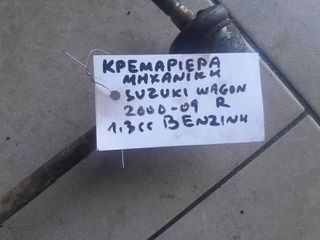 ΚΡΕΜΑΡΙΕΡΑ
ΜΗΧΑΝΙΚΗ
SUZUKI WAGON
2000-09 R
1.3cc ΒΕΝΖΙΝΗ